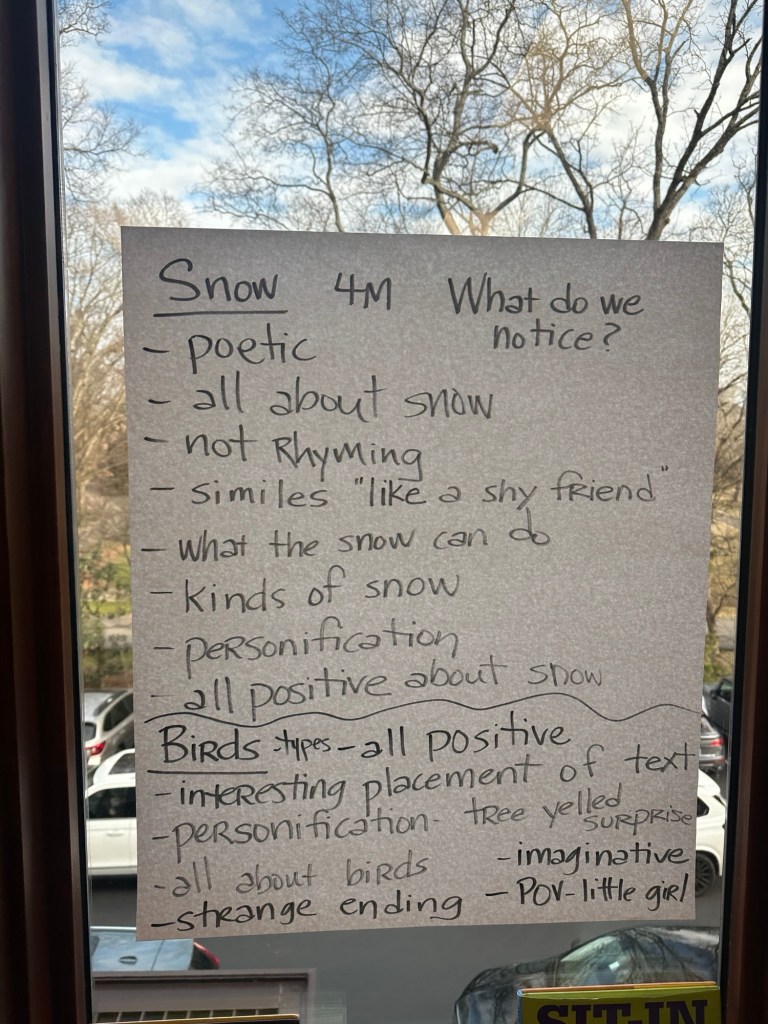 Snow 4M What do we
notice?
- poetic
- all about snow
- not Rhyming
- similes "like a shy friend"
- what the snow can do
- kinds of snow
- personification
- all positive about snow
Birds -types - all positive
- interesting placement of text
- personification - tree yelled
SURPRISE
- all about birds
- imaginative
- strange ending
- POV - little girl
SIT-IN